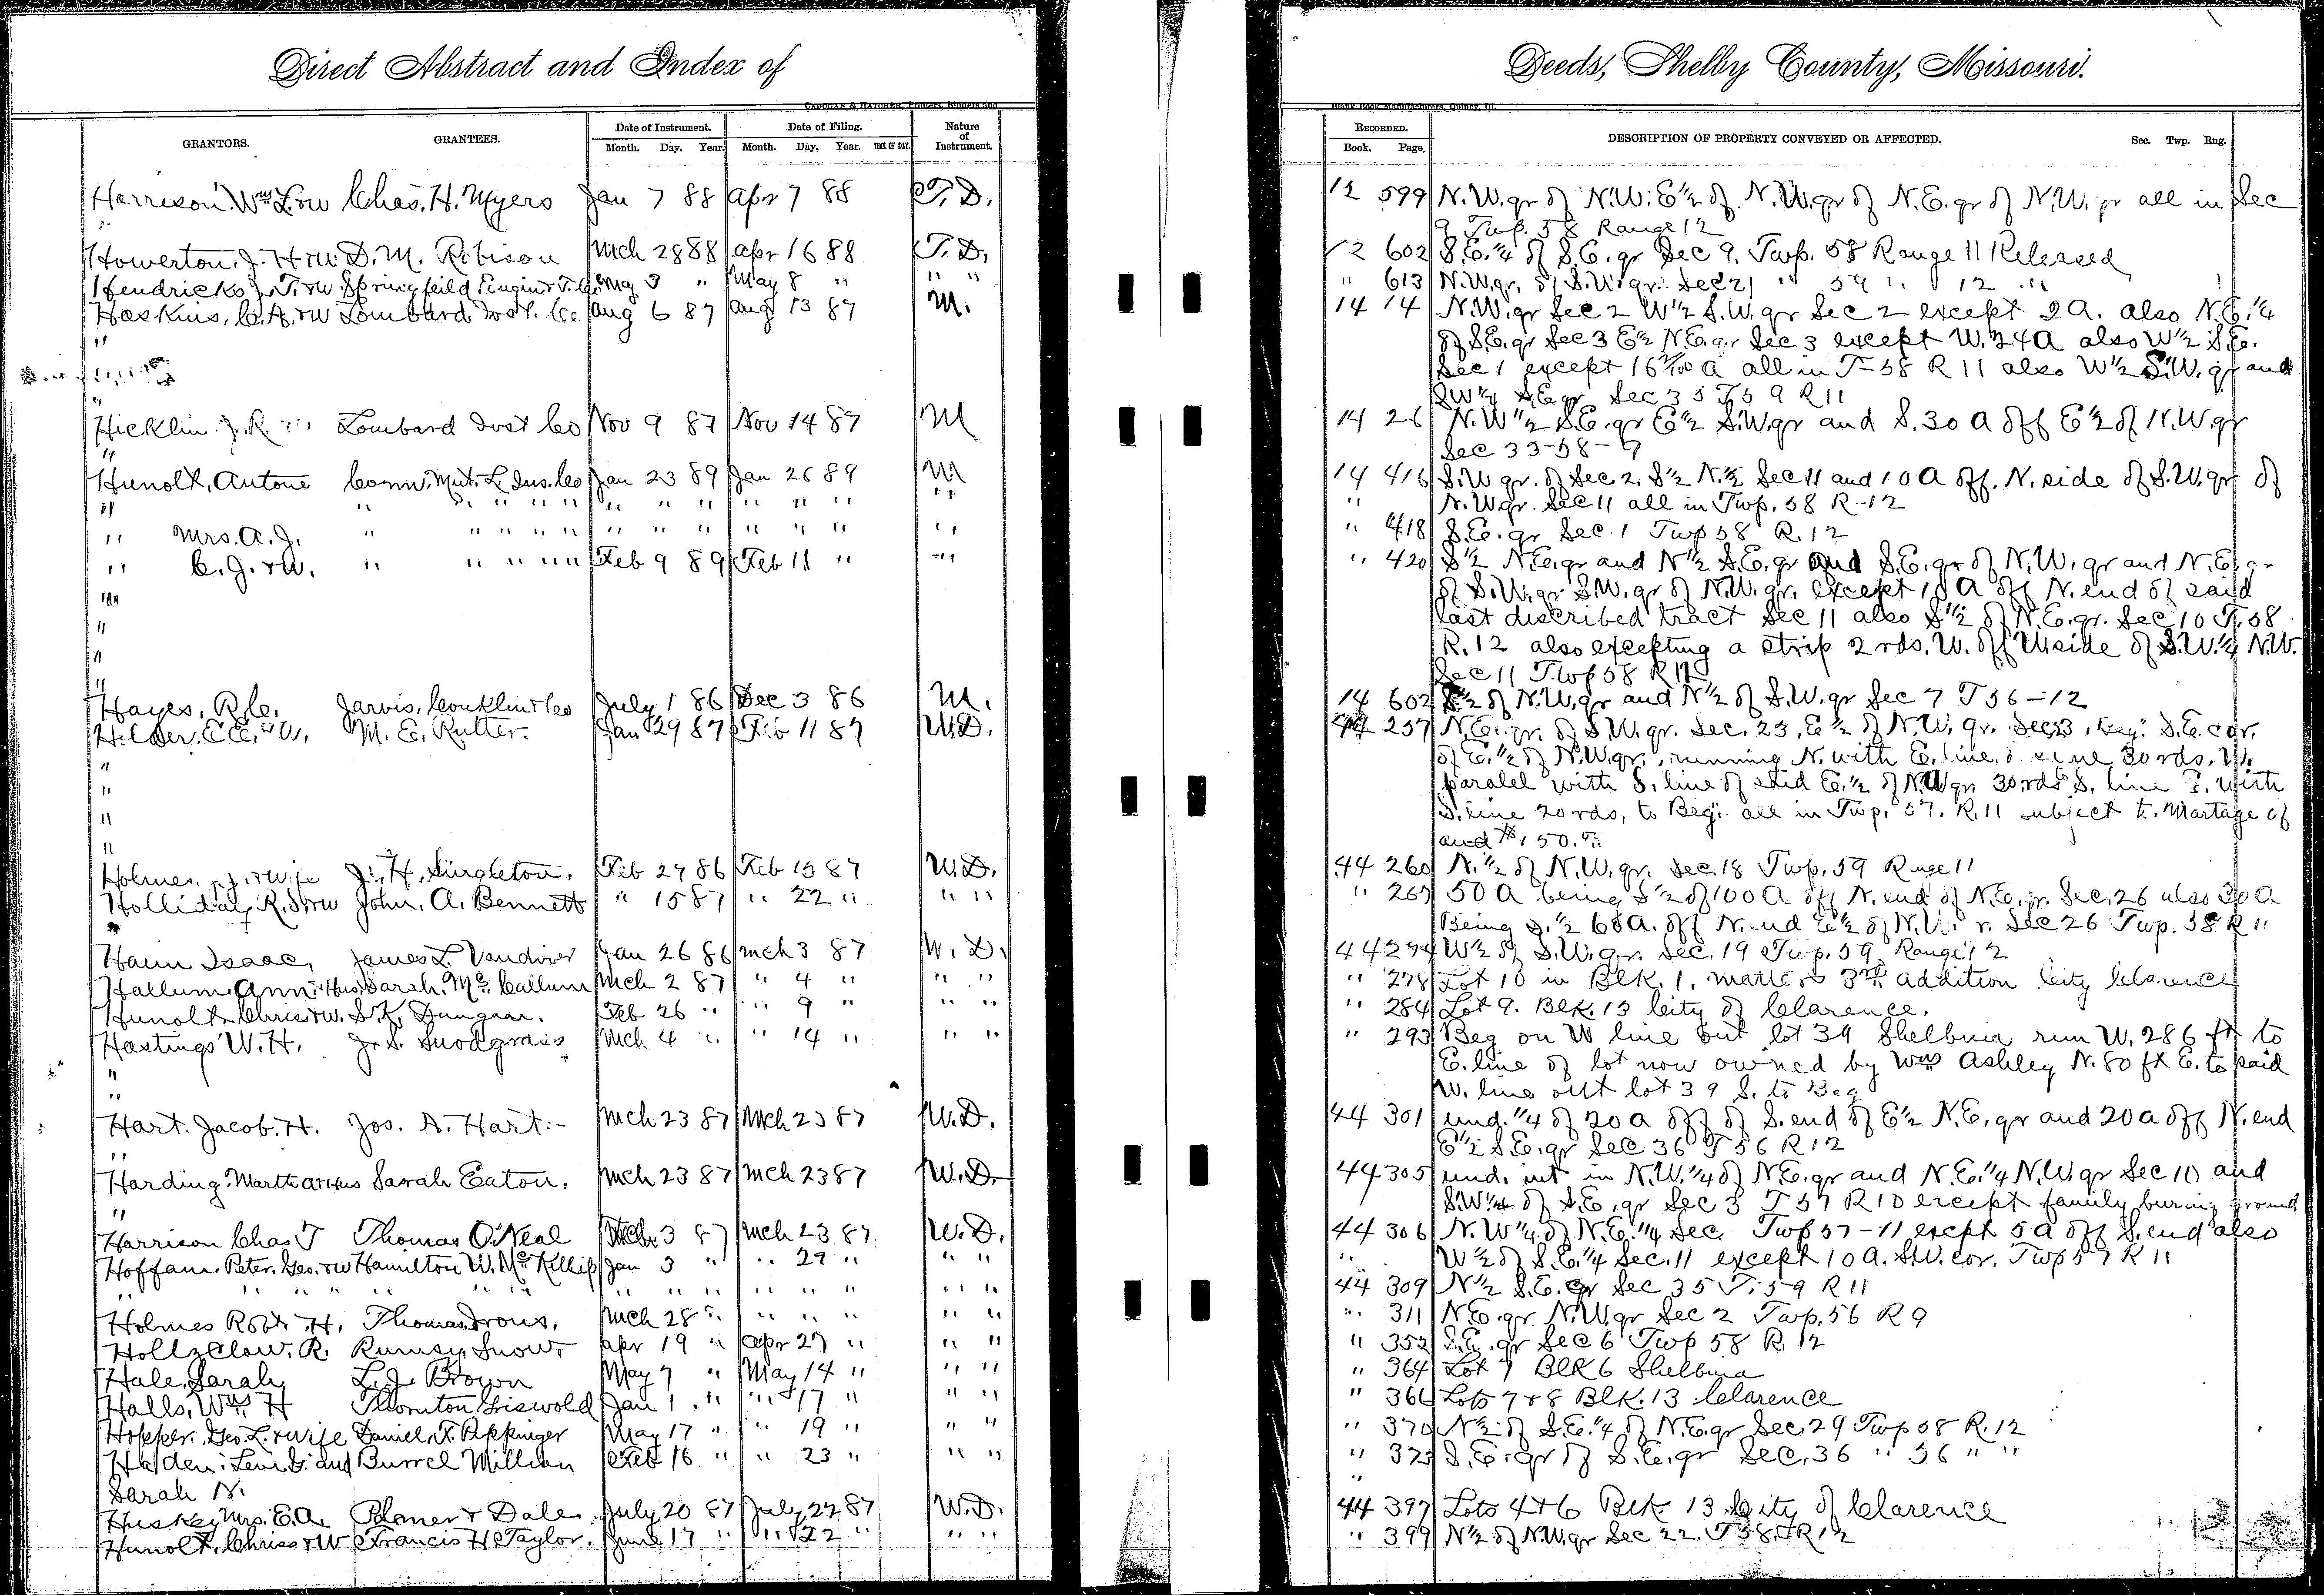 Direct Abstract and Index of
Deeds, Shelby County, Missouri.
CADOGAN & HATCHER, Printers, Binders and
Blank Book Manufacturers, Quincy, Ill.
GRANTORS. GRANTEES. Date of Instrument. Date of Filing. Nature of Instrument.
Month. Day. Year. Month. Day. Year. TIME OF DAY.
RECORDED. DESCRIPTION OF PROPERTY CONVEYED OR AFFECTED. Sec. Twp. Rng.
Book. Page.
Harrison. Wm L. & W Chas. H. Myers Jan 7 88 Apr 7 88 T. D. 12 599 N.W. qr of N.W. E 1/2 of N.W. qr of N.E. qr of N.W. qr all in Sec
" 9 Twp. 58 Range 12
Howerton, J. H & W D. M. Robison Mch 28 88 Apr 16 88 T. D. 12 602 S.E. 1/4 of S.E. qr Sec 9, Twp. 58 Range 11 Released
Hendricks J. T. & W Springfeild Engin & T. Co May 3 " May 8 " " " " 613 N.W. qr. of S.W. qr. Sec 21 " 59 " 12 "
Haskins, C. A. & W Lombard Invst. Co. Aug 6 87 Aug 13 87 M. 14 14 N.W. qr Sec 2 W 1/2 S.W. qr Sec 2 except 2 A. also N.E. 1/4
" of S.E. qr Sec 3 E 1/2 N.E. qr Sec 3 except W. 24 A also W 1/2 S.E.
Sec 1 except 16 A all in T-58 R 11 also W 1/2 S.W. qr and
" SW 1/4 S.E. qr Sec 35 T 59 R 11
Hicklin J. R. Lombard Invt Co Nov 9 87 Nov 14 87 M 14 26 N.W 1/2 S.E. qr E 1/2 S.W. qr and S. 30 A off E 1/2 of N.W. qr
" Sec 33-58-9
Hunolt, Antone Conn. Mut. L. Ins. Co Jan 23 89 Jan 26 89 M 14 416 S.W qr. of Sec 2. S 1/2 N. 1/2 Sec 11 and 10 A off. N. side of S.W. qr of
" " " " " " " " " " " " " " N.W. qr. Sec 11 all in Twp. 58 R-12
" Mrs. A. J. " " " " " " " " " " " " " 418 S.E. qr Sec. 1 Twp 58 R. 12
" C. J. & W. " " " " " Feb 9 89 Feb 11 " " " 420 S 1/2 N.E. qr and N 1/2 S.E. qr and S.E. qr of N.W. qr and N.E. qr
" of S.W. qr S.W. qr of N.W. qr. except 10 A off N. end of said
" last described tract Sec 11 also S 1/2 of N.E. qr. Sec 10 T. 58
" R. 12 also excepting a strip 2 rds. W. off W side of S.W. 1/4 N.W.
" Sec 11 Twp 58 R 12
Hayes, R. C. Jarvis, Conklin & Co July 1 86 Dec 3 86 M. 14 602 S 1/2 of N.W. qr and N 1/2 of S.W. qr Sec 7 T 56-12
M. E. Rutter. Jan 29 87 Feb 11 87 W.D. 44 257 N.E. qr. of S.W. qr. Sec. 23, E 1/2 of N.W. qr. Sec 23, beg. S.E. cor.
" of E. 1/2 of N.W. qr., running N. with E. line 30 rds. W.
" paralel with S. line of said E. 1/2 of N.W qr. 30 rds S. line E. with
" S. line 20 rds, to Beg: all in Twp. 57. R. 11 subject to Martage of
" and $150.00
Holmes, J. & wife J. H. Singleton. Feb 27 86 Feb 15 87 W.D. 44 260 N. 1/2 of N.W. qr. Sec. 18 Twp. 59 Range 11
Holliday R. S. & W John. A. Bennett " 15 87 " 22 " " " " 267 50 A being S 1/2 of 100 A off N. end of N.E. qr. Sec. 26 also 30 A
" Being S. 1/2 60 A. off N. end E 1/2 of N.W. r. Sec 26 Twp. 58 R 11
Hann Isaac, James L. Vandiver Jan 26 86 Mch 3 87 W. D. 44 274 W 1/2 of S.W. qr. Sec. 19 Twp. 59, Range 12
Hallum Ann & Hus. Sarah. Mc. Callum Mch 2 87 " 4 " " " " 278 Lot 10 in Blk. 1. 3rd addition City Clarence
Hunolt Chris & W. S. K. Dungan. Feb 26 " " 9 " " " " 284 Lot 9. Blk. 13 City of Clarence.
Hastings W. H. J. S. Snodgrass Mch 4 " " 14 " " " " 293 Beg on W line out lot 39 Shelbina run W. 286 ft to
" E. line of lot now owned by Wm Ashley N. 80 ft E. to said
" W. line out lot 39 S. to Beg
Hart. Jacob. H. Jos. A. Hart:- Mch 23 87 Mch 23 87 W.D. 44 301 und. 1/4 of 20 a off of S. end of E 1/2 N.E. qr and 20 a off N. end
" E 1/2 S.E. qr Sec 36 T 56 R 12
Harding. Martha & Hus Sarah Eaton. Mch 23 87 Mch 23 87 W.D. 44 305 und. int in N.W. 1/4 of N.E. qr and N.E. 1/4 N.W. qr Sec 10 and
" S.W 1/4 of S.E. qr Sec 3 T 57 R 10 except family buring ground
Harrison Chas T Thomas O'Neal 3 87 Mch 23 87 W.D. 44 306 N.W 1/4 of N.E. 1/4 Sec. Twp 57-11 excpt 5 A off S. end also
Hoffam. Peter. Geo. & W Hamilton W. McKillip Jan 3 " " 29 " " " " W 1/2 of S.E. 1/4 Sec. 11 except 10 A. S.W. cor. Twp 57 R 11
" " " " " " " " " " " " " 44 309 N 1/2 S.E. qr Sec 35 T. 59 R 11
Holmes Robt. H. Thomas Irons. Mch 28 " " " " " " " 311 N.E. qr. N.W. qr Sec 2 Twp. 56 R 9
Hollzclaw. R. Rumsey Snow. Apr 19 " Apr 27 " " " " 352 S.E. qr Sec 6 Twp 58 R. 12
Hale, Sarah L. J. Brown May 7 " May 14 " " " " 364 Lot 7 Blk 6 Shelbina
Halls, Wm. H Thornton Griswold Jan 1 " " 17 " " " " 366 Lots 7 & 8 Blk. 13 Clarence
Hopper. Geo. L. & Wife Daniel, T. Peppinger May 17 " " 19 " " " " 370 N 1/2 of S.E. 1/4 of N.E. qr Sec. 29 Twp 58 R. 12
Halden. Levi G. and Burrel Million Feb 16 " " 23 " " " " 373 S.E. qr of S.E. qr Sec. 36 " 56 " "
Sarah N. "
Huskey Mrs. E. A. Palmer & Dale July 20 87 July 22 87 W.D. 44 397 Lots 4 & 6 Blk 13 City of Clarence
Hunolt, Chriss & W Francis H. Taylor. June 17 " " 22 " " " " 399 N 1/2 of N.W. qr Sec 22. T 58. R 12